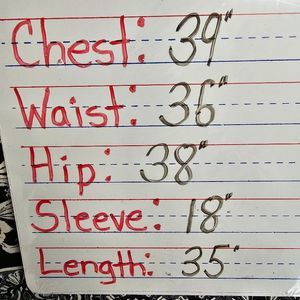 Chest: 39"
Waist: 36"
Hip: 38"
Sleeve: 18"
Length: 35"